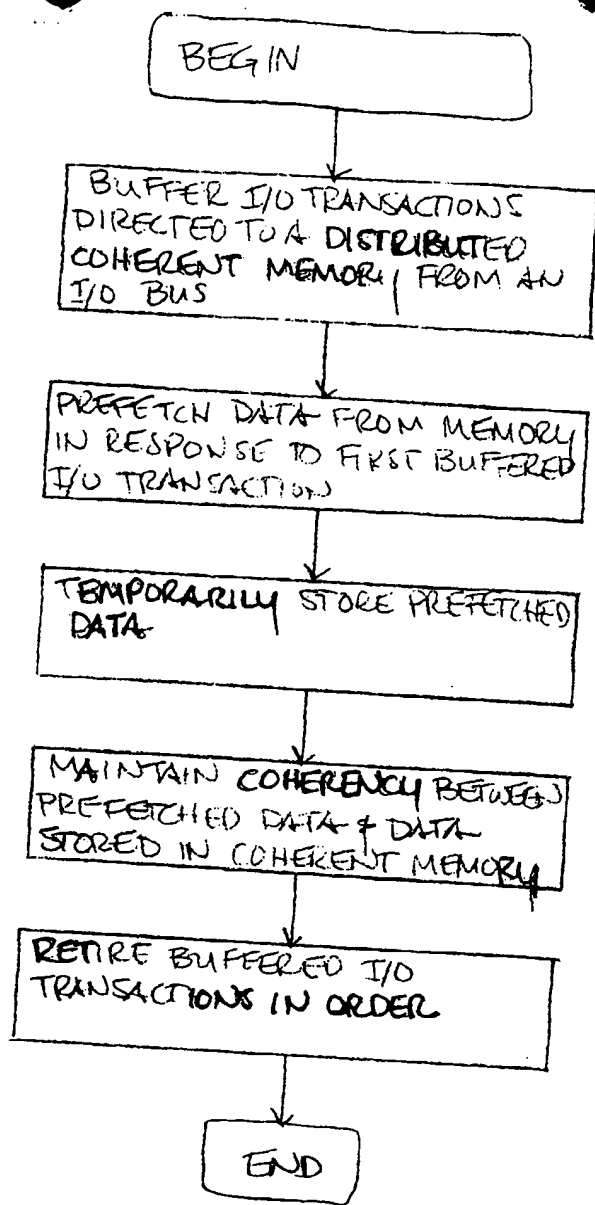 BEGIN
BUFFER I/O TRANSACTIONS
DIRECTED TO A DISTRIBUTED
COHERENT MEMORY FROM AN
I/O BUS
PREFETCH DATA FROM MEMORY
IN RESPONSE TO FIRST BUFFERED
I/O TRANSACTION
TEMPORARILY STORE PREFETCHED
DATA
MAINTAIN COHERENCY BETWEEN
PREFETCHED DATA & DATA
STORED IN COHERENT MEMORY
RETIRE BUFFERED I/O
TRANSACTIONS IN ORDER
END